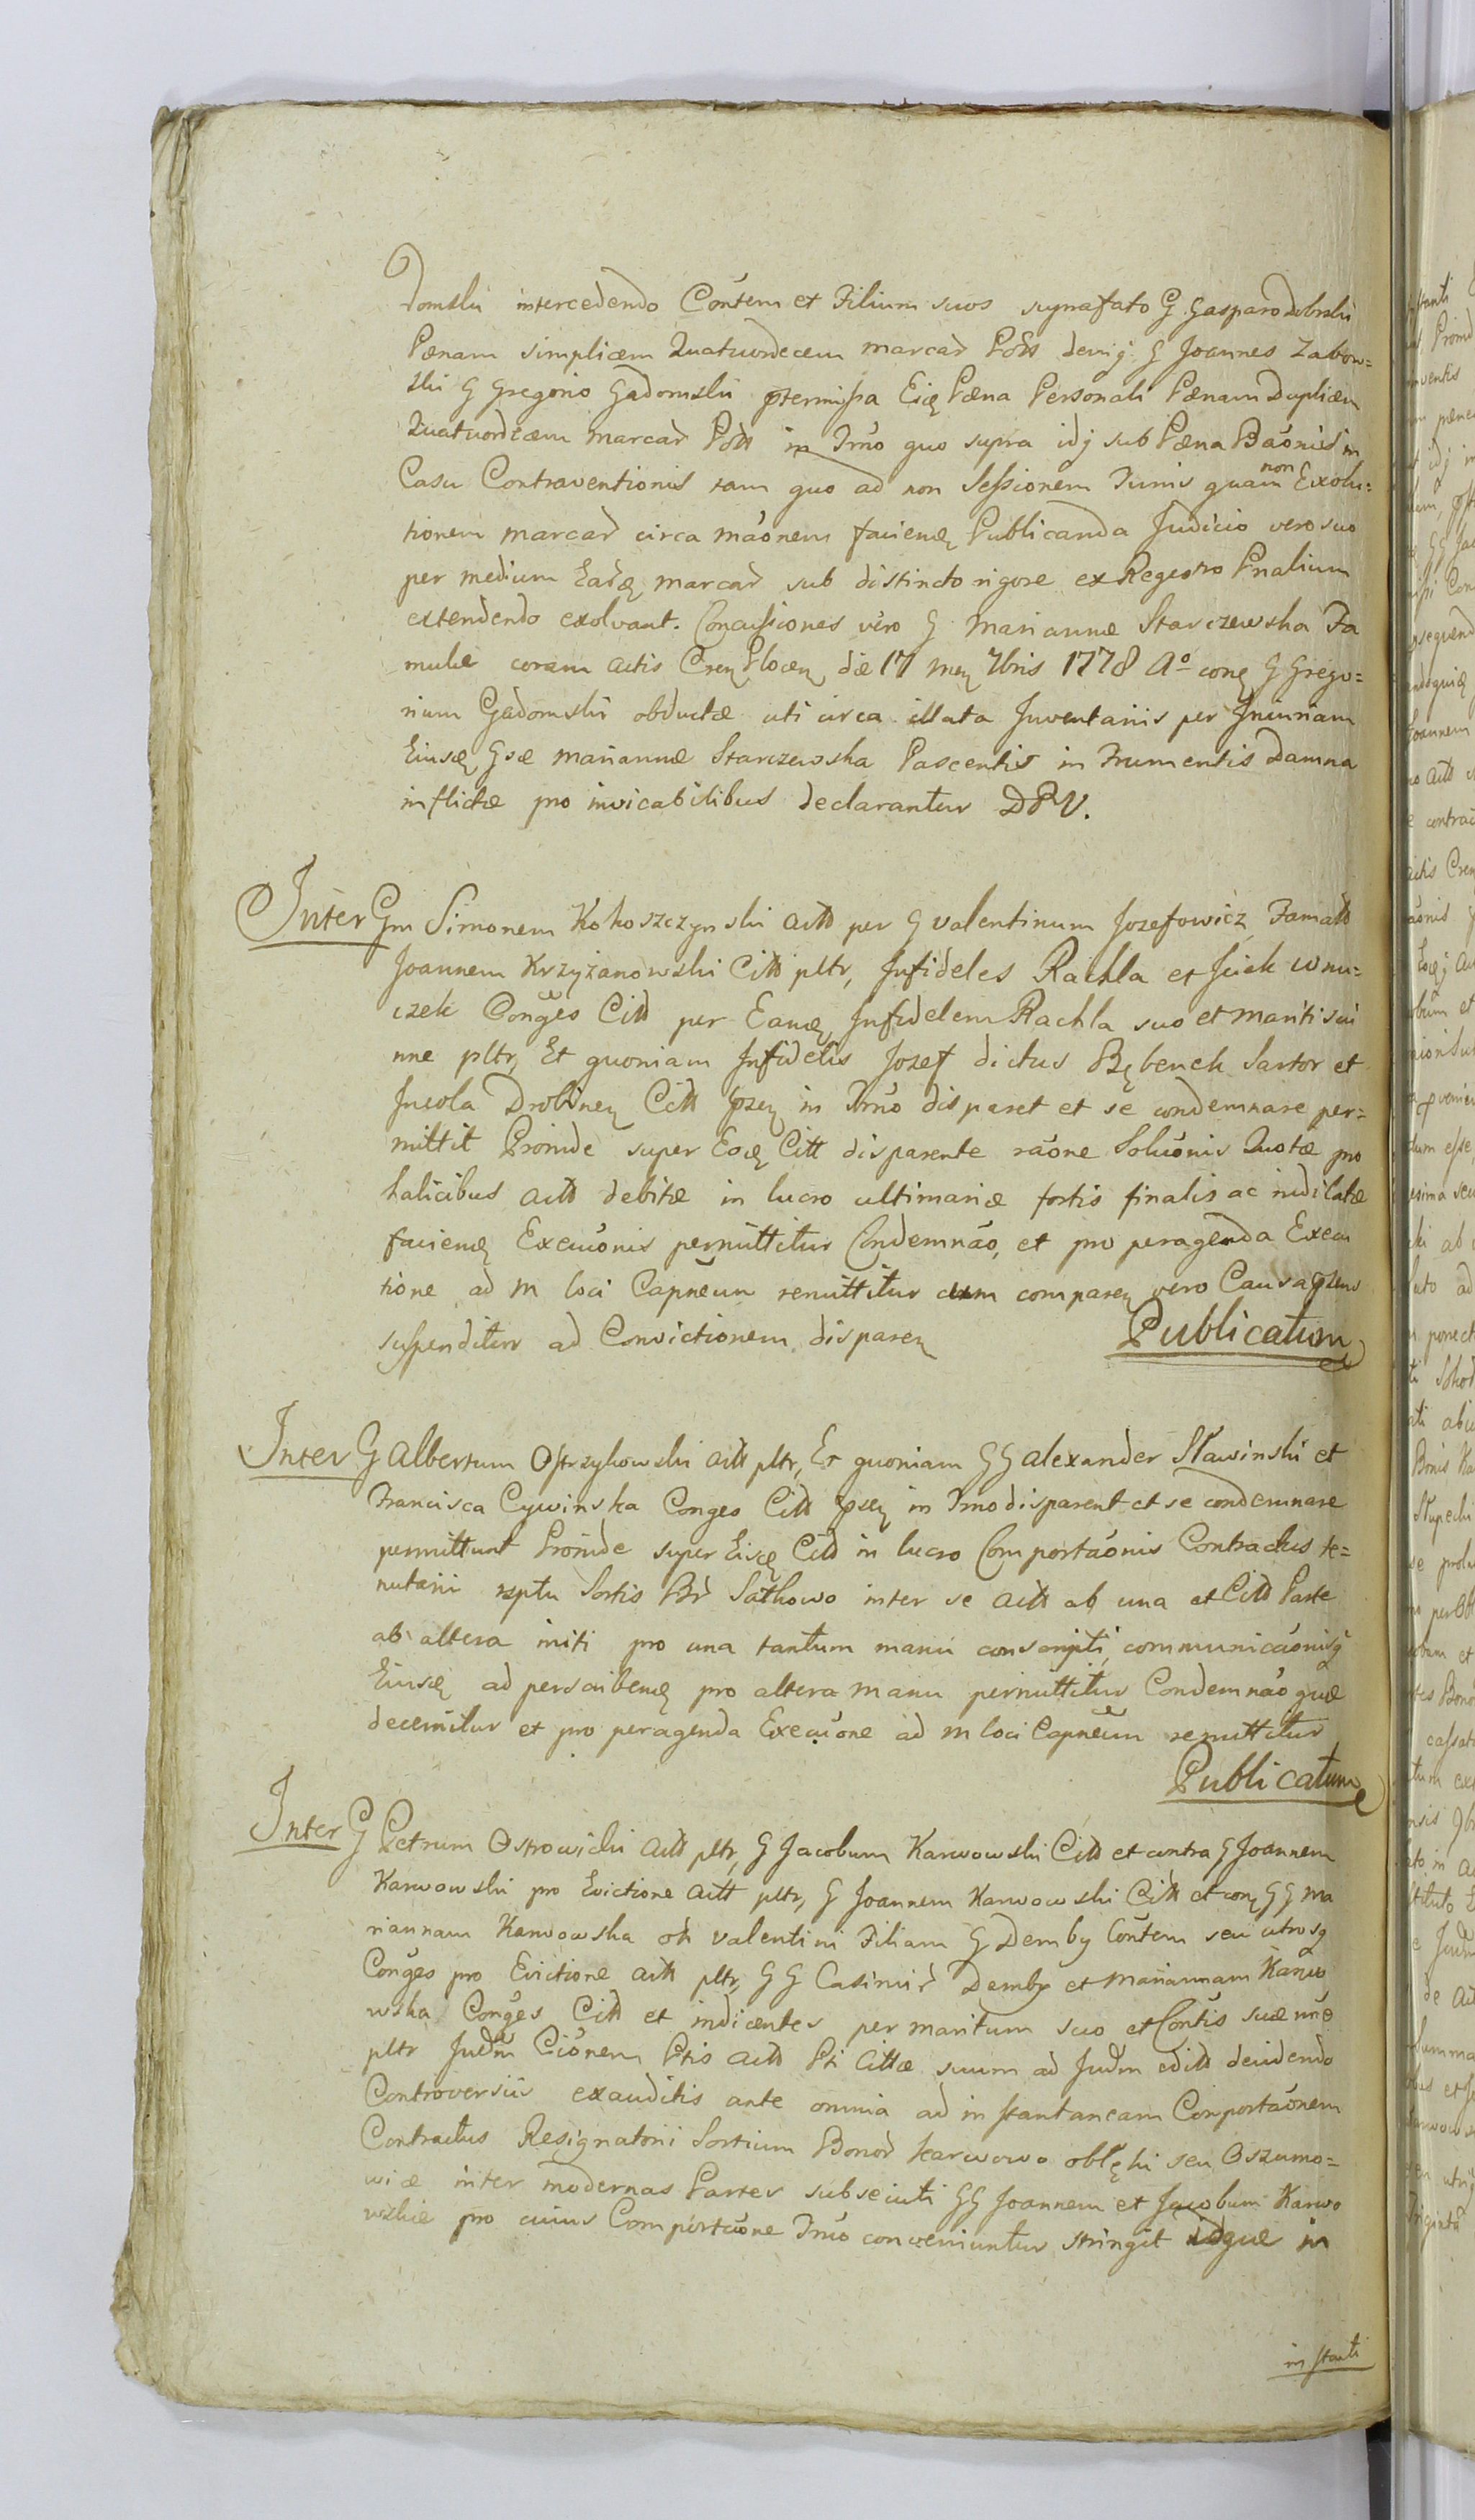 domski intercedendo Cóntem et Filium suos suprafato G Gasparo Dobrski
Pænam simplicem Quatuordecem marcar Polł deniq G Joannes Zabow=
ski G Gregorio Gadomski ptermissa Eię Pæna Personali Pænam Duplicem
Quatuordecem marcar Polł in Trńo quo supra idq sub Pæna Baónis in
Casu Contraventionis tam quo ad non Sessionem Turris quam non Exolu=
tionem marcar circa maónem faciend Publicanda Judicio vero suo
per medium Eard marcar sub distincto rigore ex Regestro Pnalium
extendendo exolvant. Concussiones vero G Mariannæ Starczewska Fa
mulæ coram actis Cren Plocen die 17 men 7bris 1778 Ao cong G Grego=
rium Gadomski obductæ uti circa illata Juventariis per Jniuriam
Eiusd Gsæ Mariannæ Starczewska Pascentis in Frumentis Damna
inflictæ pro invicabilibus declarantur DPV.
Inter Gm Simonem Kokoszczynski Actt per G Valentinum Jozefowicz Famatt
Joannem Krzyżanowski Citt pltr, Jnfideles Rachla et Jcick wnu=
czek Conges Citt per Eand Jnfidelem Rachla suo et mariti sui
nne pltr, Et quoniam Jnfidelis Jozef dictus Bębenek Sartor et
Jncola Drobinen Citt psen in Trńo disparet et se condemnare per=
mittit Proinde super Eod Citt disparente raóne Soluónis Quotæ pro
halicibus Actt debitæ in lucro ultimariæ fortis finalis ac iudicatæ
faciend Execuónis permittitur Condemnáo, et pro peragenda Execu
tione ad m loci Capneum remittitur cum comparen vero Causa psens
suspenditur ad Convictionem disparen Publicatum
Inter G Albertum Ostrzykowski Actt pltr, Et quoniam GG Alexander Sławinski et
Francisca Cywinska Conges Citt psen in Trńo disparent et se condemnare
permittunt Proinde super Eisd Citt in lucro Comportaónis Contractus te=
nutarii rsptu Sortis Br Satkowo inter se Actt ab una et Citt Parte
ab altera initi pro una tantum manu conscripti, communicaónisq
Eiusd ad perscribend pro altera manu permittitur Condemnáo quæ
decernitur et pro peragenda Execuóne ad m loci Capneum remittitur
Publicatum
Inter G Petrum Ostrowicki Actt pltr, G Jacobum Karwowski Citt et contra G Joannem
Karwowski pro Evictione Actt pltr, G Joannem Karwowski Citt et cong GG Ma
riannam Karwowska olt Valentini Filiam G Demby Cóntem seu utrosq
Conges pro Evictione Actt pltr, GG Casimir Demby et Mariannam Karwo
wska Conges Citt et indicentes per maritum suo et Cóntis suæ nńe
pltr Judm Ciónem Ptis Actt Pti Cittæ suum ad Judm editt deiudendo
Controversiis exauditis ante omnia ad instantaneam Comportaónem
Contractus Resignatorii Sortium Bonor Karwowo obłęki seu Oszumo=
wiæ inter modernas Partes subsecuti GG Joannem et Jacobum Karwo
wskie pro cuius Comportaóne Trńo conveniuntur stringit idque in
instanti